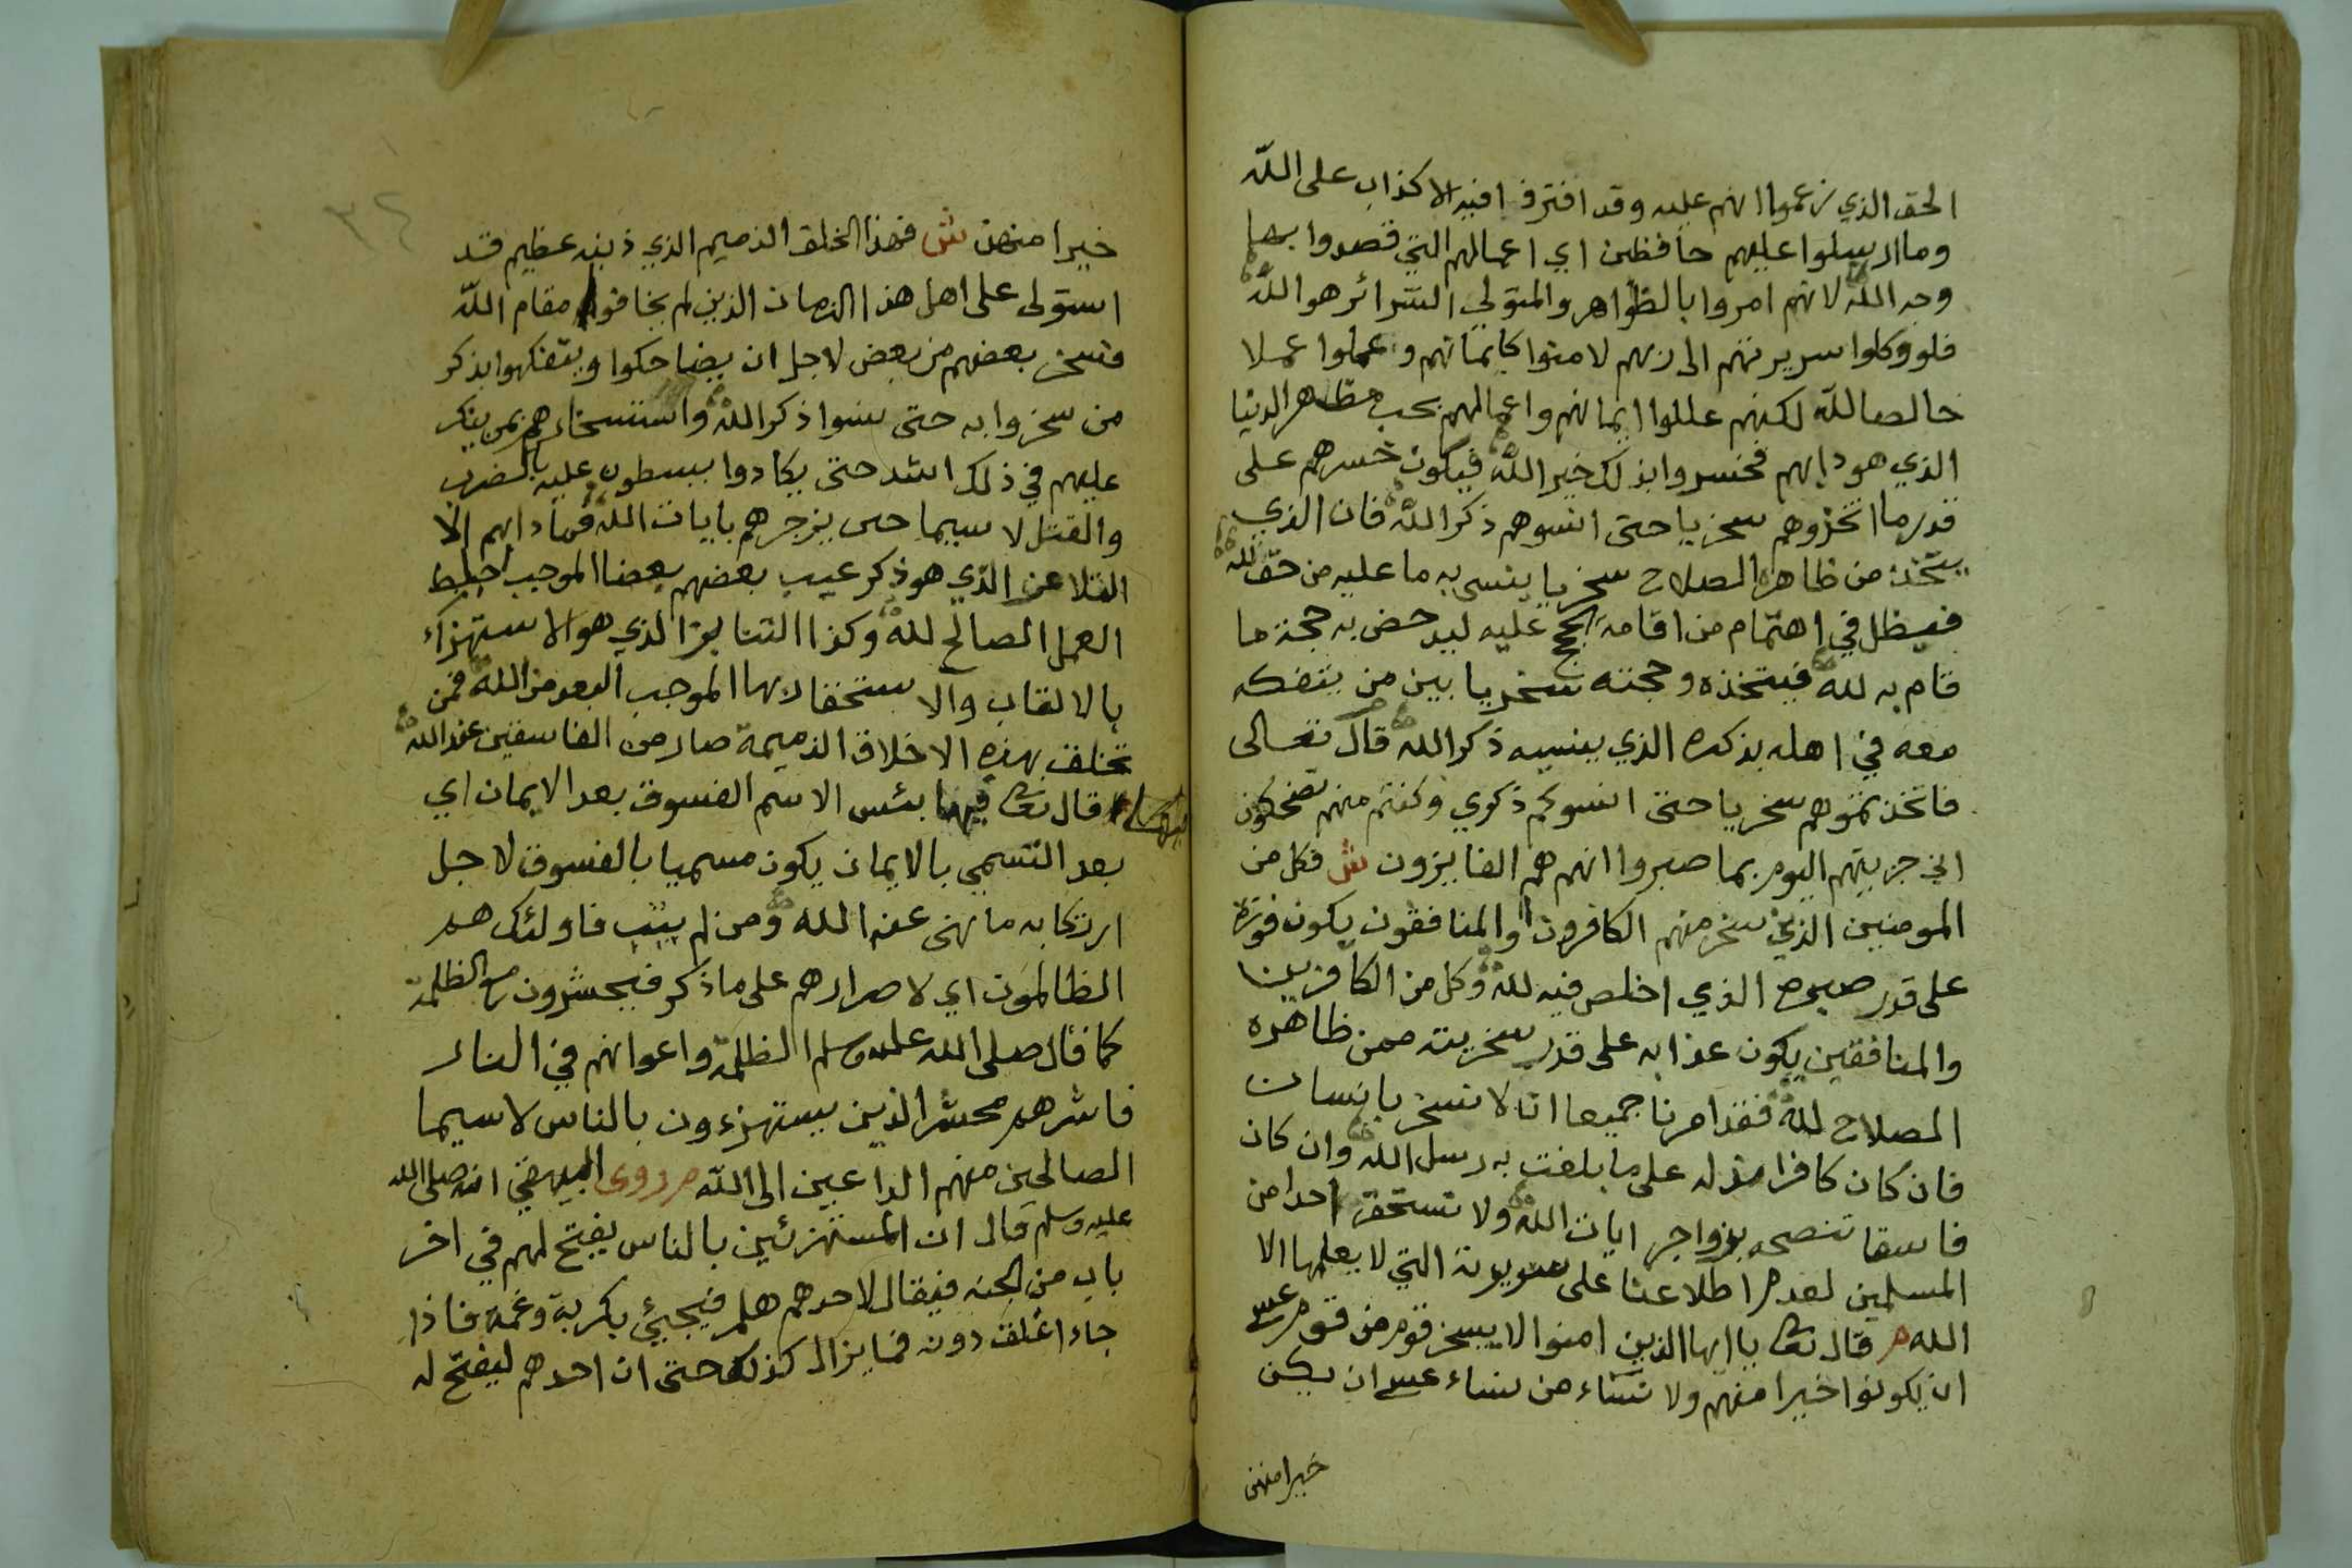 الحق الذي زعموا انهم عليه وقد افترفوا فيه الاكذاب على اللّه
وما ارسلوا عليهم حافظين اي اعمالهم التي قصدوا بها
وجه اللّه لانهم امروا بالظواهر والمتولي السّرائر هو اللّه
فلو وكلوا سريرتهم الى ربهم لامنوا كايمانهم وعملوا عملا
خالصا للّه لكنهم عللوا ايمانهم واعمالهم بحب مظاهر الدنيا
الذي هو دابهم فخسروا بذلك خير اللّه فيكون خسرهم على
قدر ما اتخذوهم سخريا حتى انسوهم ذكر اللّه فان الذي
يتّخذ من ظاهره الصلاح سخريا ينسى به ما عليه من حق للّه
فيظل في اهتمام من اقامة الحجج عليه ليدحض به حجة ما
قام به لله فيتخذه وحجته سخريا بين من يتفكه
معه في اهله بذكره الذي ينسيه ذكر الله قال تعالى
فاتخذتموهم سخريا حتى انسوكم ذكري وكنتم منهم تضحكون
اني جزيتهم اليوم بما صبروا انهم هم الفايزون ش فكل من
المومنين الذين سخر منهم الكافرون او المنافقون يكون فوزه
على قدر صبره الذي اخلص فيه لله وكل من الكافرين
والمنافقين يكون عذابه على قدر سخريته ممن ظاهره
الصلاح لله فقد امرنا جميعا انا لا نسخر بانسان
فان كان كافرا على ما بلغت به رسل الله وان كان
فاسقا ننصحه بزواجر ايات الله ولا نستحقر احدا من
المسلمين لعدم اطلاعنا على سريرته التي لا يعلمها الا
الله م قال تعا ياايها الذين امنوا لا يسخر قوم من قوم عسى
ان يكونوا خيرا منهم ولا نساء من نساء عسى ان يكن
خيرا منهن
٣٢
خيرا منهن ش فهذا الخلق الذميم الذي ذنبه عظيم قد
استولى على اهل هذا الزمان الذين لم يخافوا مقام اللّه
فسخر بعضهم من بعض لاجل ان يضاحكوا ويتفكهوا بذكر
من سخروا به حتى نسوا ذكر الله واستسخارهم بمن ينكر
عليهم في ذلك اشد حتى يكادوا يبسطون عليه بالضرب
والقتل لا سيما حين يزجرهم بايات الله فما دابهم الا
التلاعن الذي هو ذكر عيب بعضهم بعضا الموجب احباط
العمل الصالح لله وكذا التنابز الذي هو الاستهزاء
بالالقاب والاستخفاف بها الموجب البعد من الله فمن
تخلق بهذه الاخلاق الذميمة صار من الفاسقين عند الله
قال تعا فيها بئس الاسم الفسوق بعد الايمان اي
بعد التسمي بالايمان يكون مسميا بالفسوق لاجل
ارتكابه ما نهى عنه الله ومن لم يتب فاولئك هم
الظالمون اي لاصرارهم على ما ذكر فيحشرون مع الظلمة
كما قال صلى الله عليه وسلم الظلمة واعوانهم في النار
فاشرهم محشرا الذين يستهزءون بالناس لا سيما
الصالحين منهم الداعين الى اللّه م روى البيهقي انه صلى الله
عليه وسلم قال ان المستهزئين بالناس يفتح لهم في اخر
باب من الجنه فيقال لاحدهم هلم فيجيئ بكربة وغمه فاذا
جاء اغلق دونه فما يزال كذلك حتى ان احدهم ليفتح له